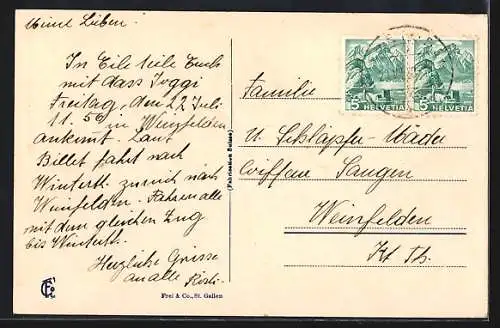 Meine Lieben.
In Eile teile Euch
mit dass Joggi
Freitag, den 22 Juli
11.56 in Weinfelden
ankommt. Laut
Billet fahrt nach
Winterth. zurück nach
Weinfelden. Fahren alle
mit dem gleichen Zug
bis Winterth.
Herzliche Grüsse
an alle Rösli.
Familie
U. Schläpfer-
Coiffeur Sangen
Weinfelden
Kt Th.
5 HELVETIA
5 HELVETIA
(Fabrication Suisse)
Frei & Co., St. Gallen